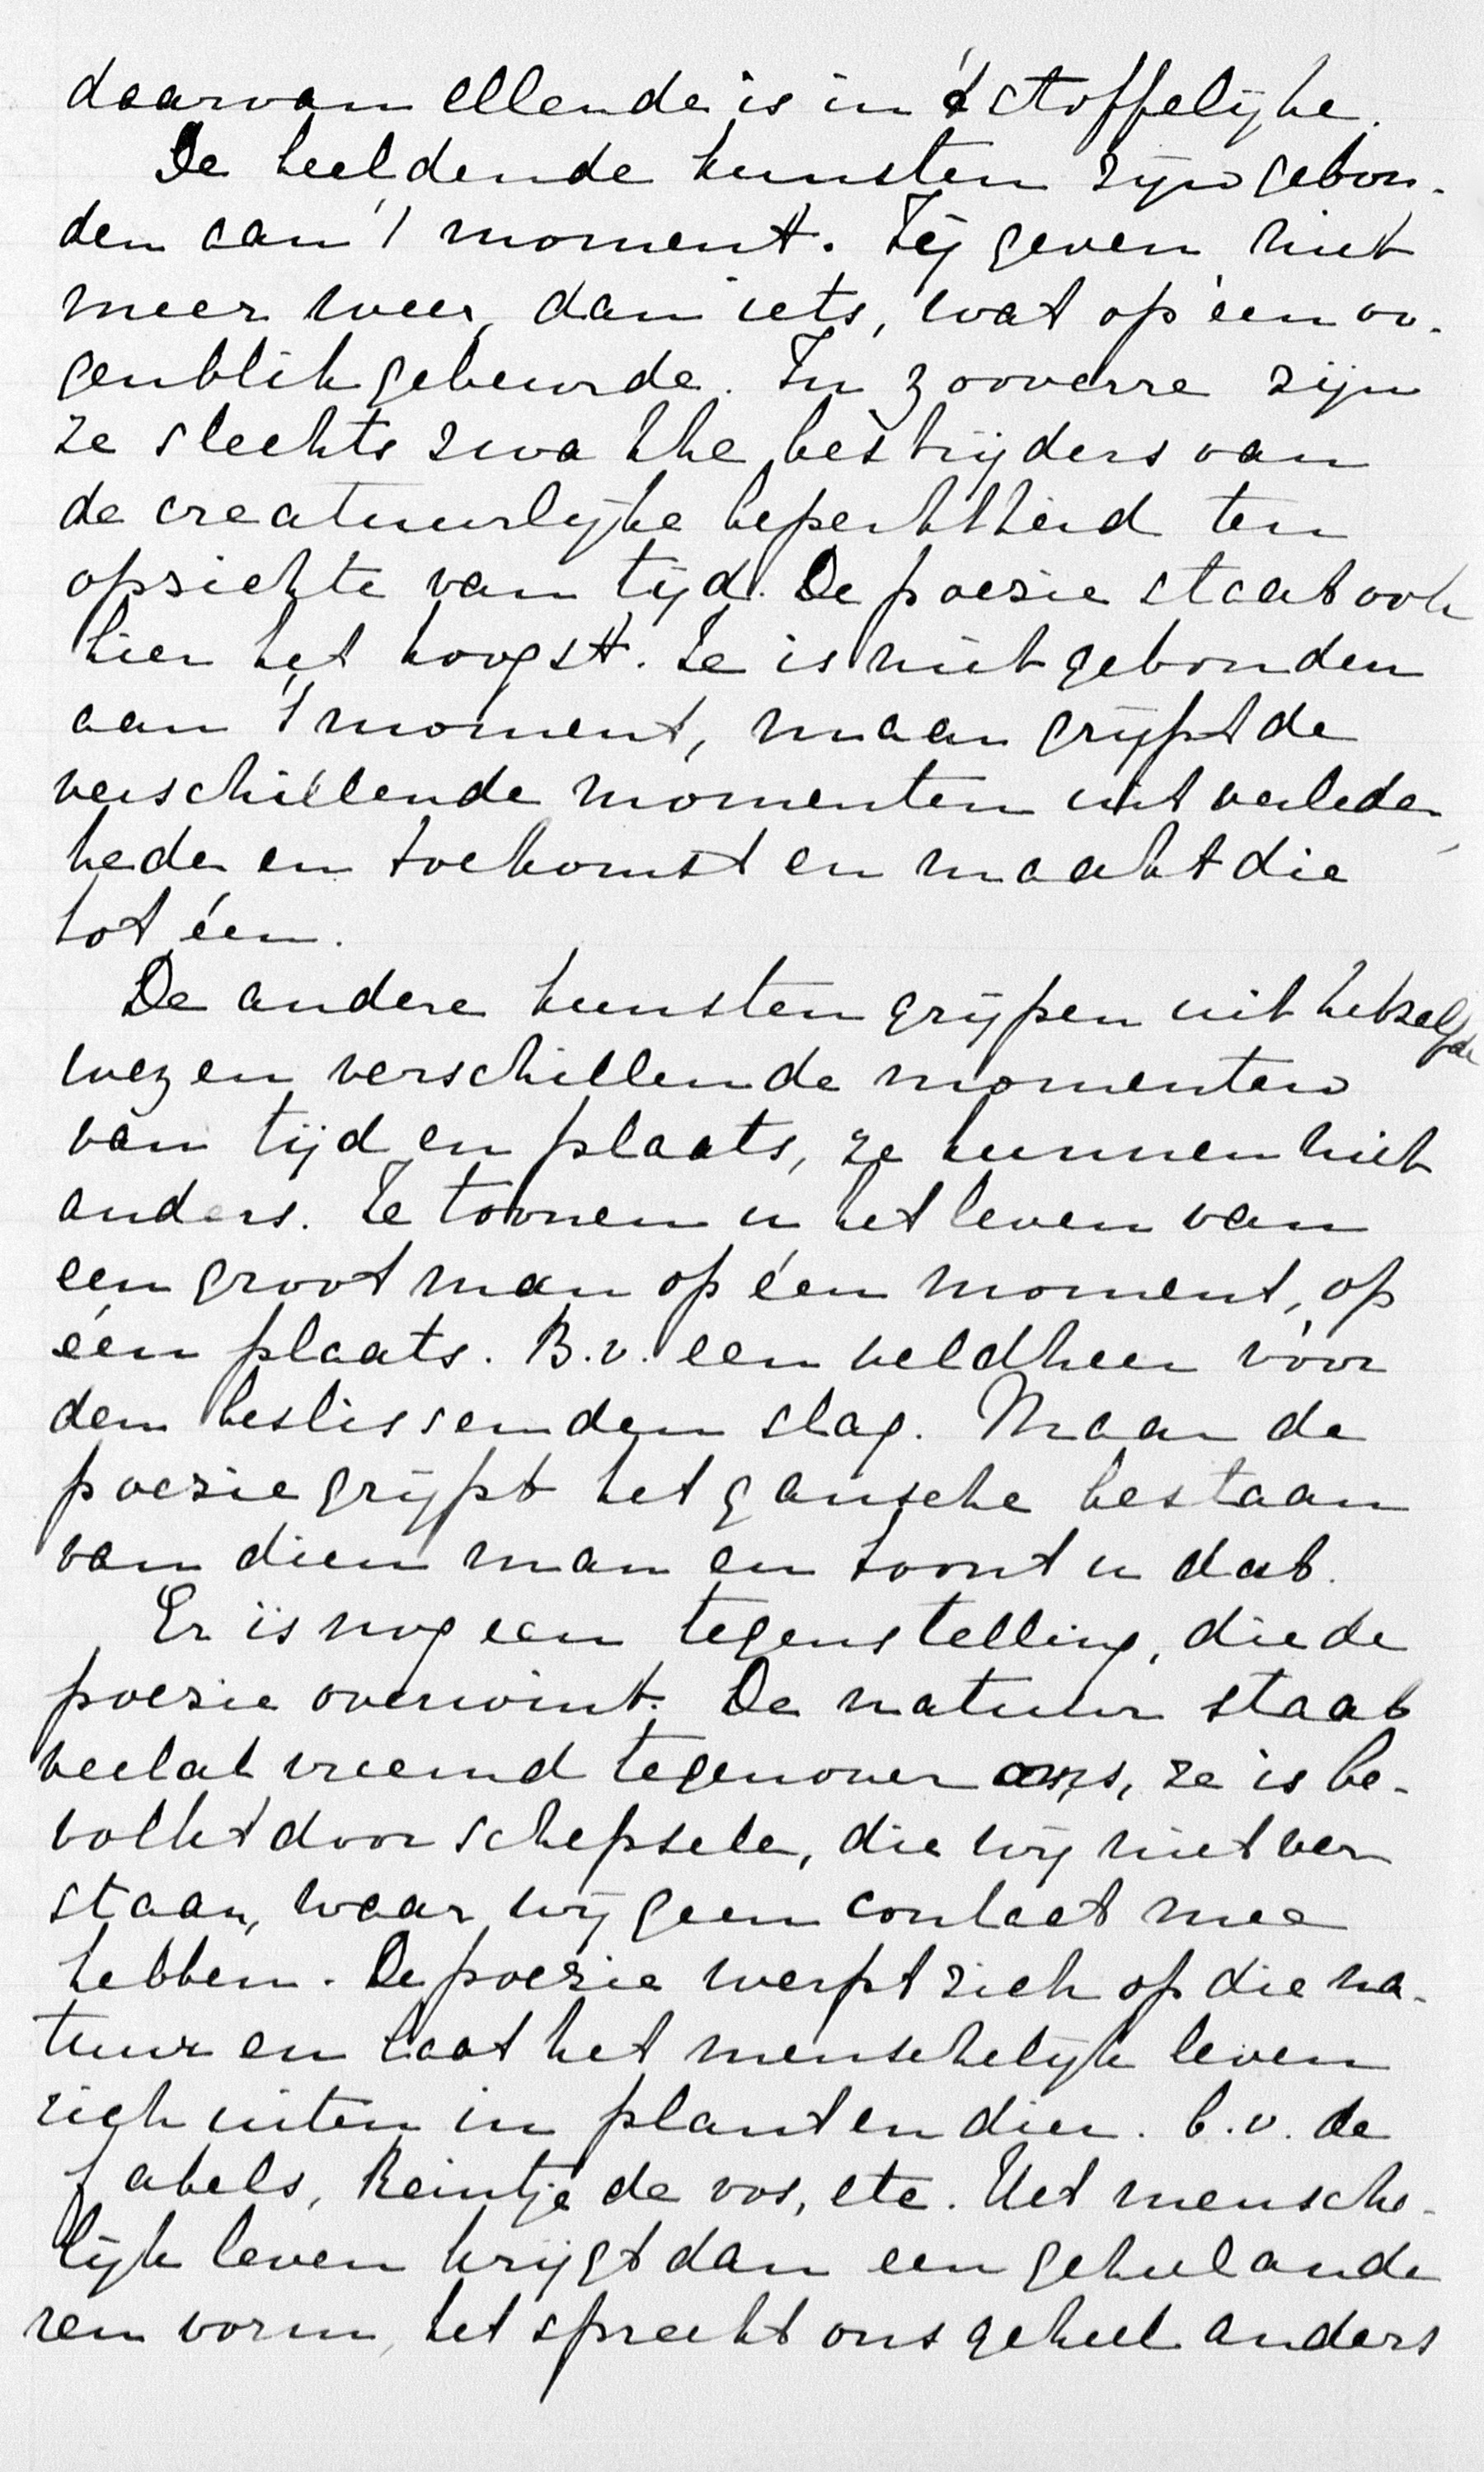 daarvan ellende is in 't stoffelijke.
De beeldende kunsten zijn gebon-
den aan 't moment. Zij geven niet
meer weer, dan iets, wat op één oo-
genblik gebeurde. In zooverre zijn
ze slechts zwakke bestrijders van
de creatuurlijke beperktheid ten
opzichte van tijd. De poezie staat ook
hier het hoogst. Ze is niet gebonden
aan 't moment, maar grijpt de
verschillende momenten uit verleden
heden en toekomst en maakt die
tot één.
De andere kunsten grijpen uit hetzelfde
wezen verschillende momenten
van tijd en plaats, ze kunnen niet
anders. Ze toonen u het leven van
een groot man op één moment, op
één plaats. B.v. een veldheer vóór
den beslissenden slag. Maar de
poezie grijpt het gansche bestaan
van dien man en toont u dat.
Er is nog een tegenstelling, die de
poezie overwint. De natuur staat
veelal vreemd tegenover ons, ze is be-
volkt door schepsele, die wij niet ver
staan, waar wij geen contact mee
hebben. De poezie werpt zich op die na-
tuur en laat het menschelijk leven
zich uiten in plant en dier. b.v. de
fabels, Reintje de vos, etc. Het mensche-
lijk leven krijgt dan een geheel ande
ren vorm, het spreekt ons geheel anders